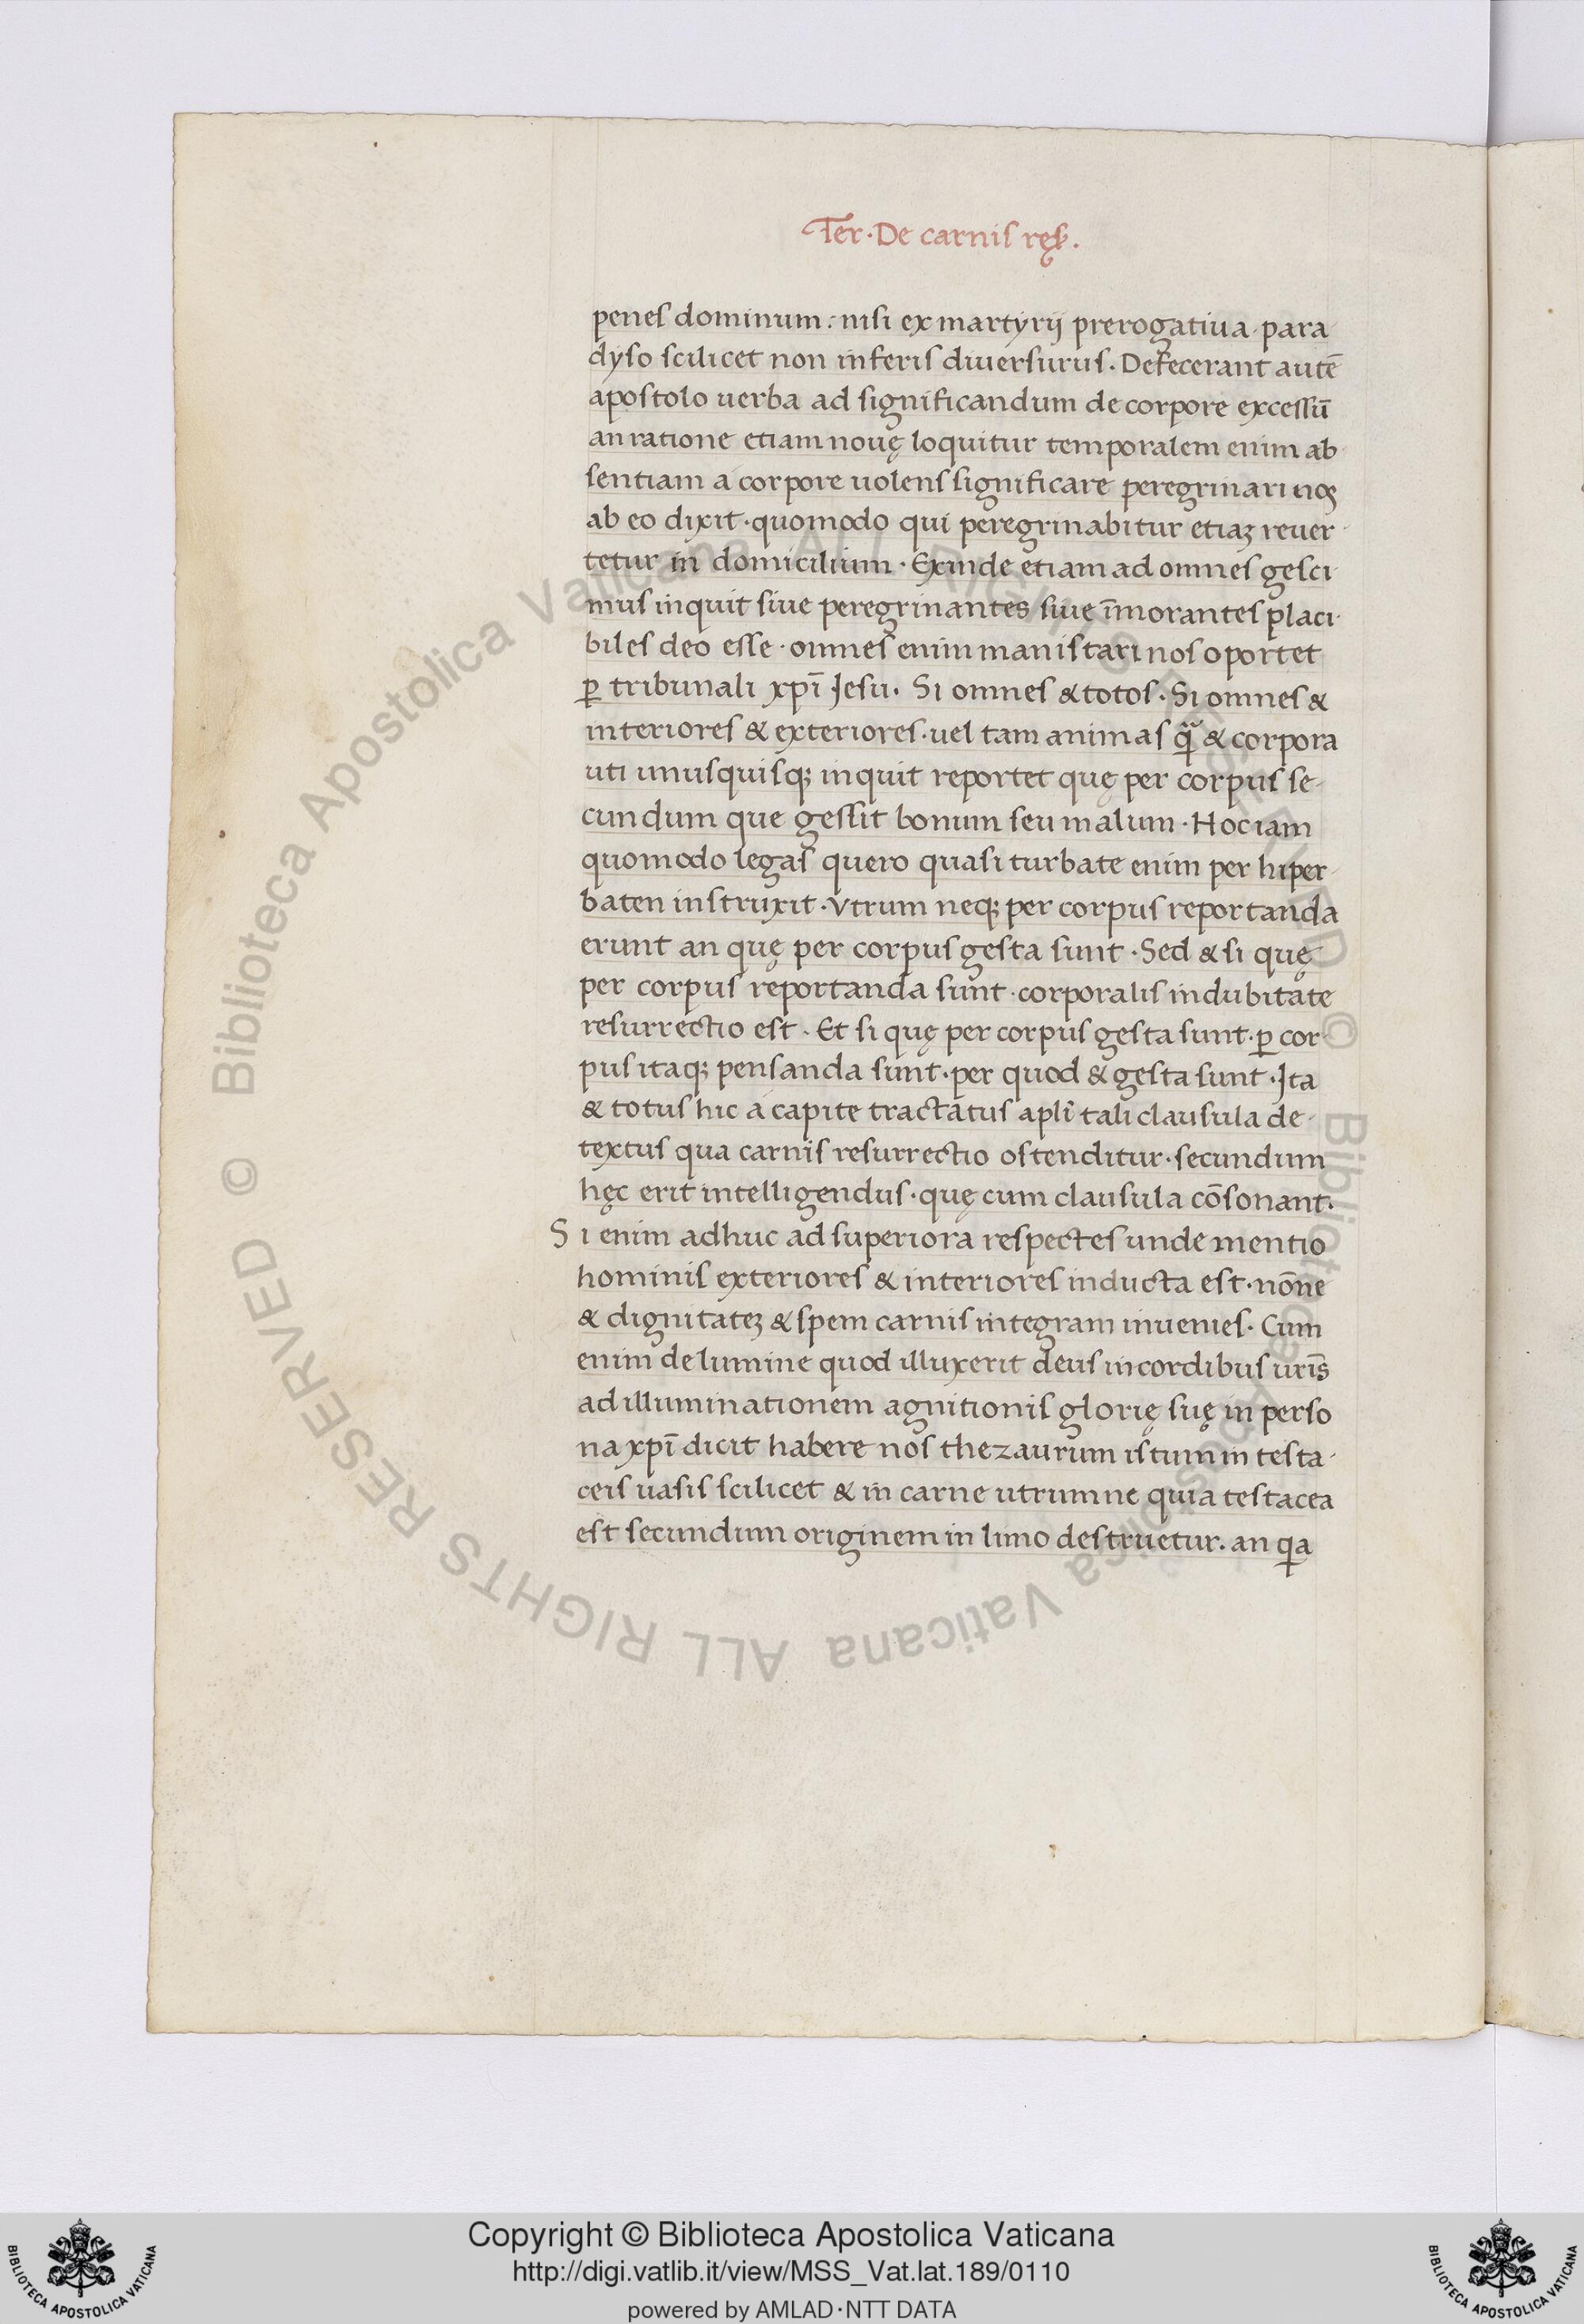 Ter · De carnis ręs̄.
penes dominum : nisi ex martyrij prerogatiua · para
dyso scilicet non inferis diuersurus · Defecerant autē
apostolo uerba ad significandum de corpore excessū
an ratione etiam nouę loquitur temporalem enim ab
sentiam a corpore uolens significare peregrinari nos
ab eo dixit · quomodo qui peregrinabitur etiaꝫ reuer
tetur in domicilium · Exinde etiam ad omnes gesci
mus inquit siue peregrinantes siue īmorantes placi
biles deo esse · omnes enim manistari nos oportet
ꝑ tribunali xpī Jesu · Si omnes & totos · Si omnes &
interiores & exteriores · uel tam animas ꝙ̃ & corpora
uti unusquisqꝫ inquit reportet quę per corpus se
cundum que gessit bonum seu malum · Hoc iam
quomodo legas quero quasi turbate enim per hiper
baten instruxit · Vtrum neqꝫ per corpus reportanda
erunt an quę per corpus gesta sunt · Sed & si quę
per corpus reportanda sunt · corporalis indubitate
resurrectio est · Et si quę per corpus gesta sunt · ꝑ cor
pus itaqꝫ pensanda sunt · per quod & gesta sunt · Jta
& totus hic a capite tractatus aplī tali clausula de
textus qua carnis resurrectio ostenditur · secundum
hęc erit intelligendus · quę cum clausula cōsonant ·
Si enim adhuc ad superiora respectes unde mentio
hominis exteriores & interiores inducta est · nōne
& dignitateꝫ & spem carnis integram inuenies · Cum
enim de lumine quod illuxerit deus in cordibus urīs
ad illuminationem agnitionis glorię suę in perso
na xpī dicit habere nos thezaurum istum in testa
ceis uasis scilicet & in carne utrumne quia testacea
est secundum originem in limo destruetur · an ꝗa
© Biblioteca Apostolica Vaticana ALL RIGHTS RESERVED © Biblioteca Apostolica Vaticana ALL RIGHTS RESERVED
Copyright © Biblioteca Apostolica Vaticana
http://digi.vatlib.it/view/MSS_Vat.lat.189/0110
powered by AMLAD·NTT DATA
BIBLIOTECA APOSTOLICA VATICANA
BIBLIOTECA APOSTOLICA VATICANA